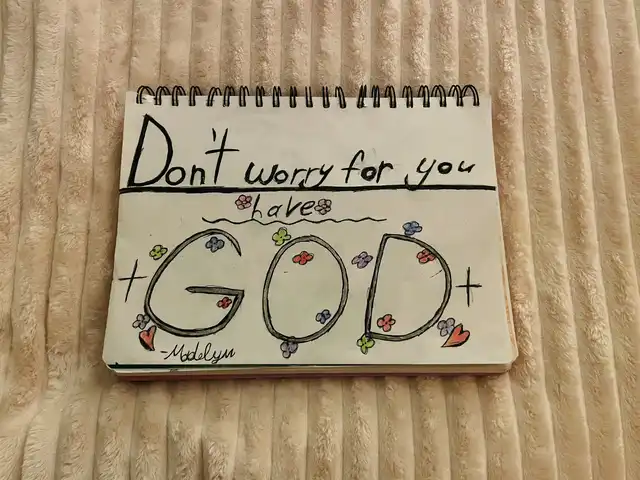 Don't worry for you
have
GOD
-Madelyn